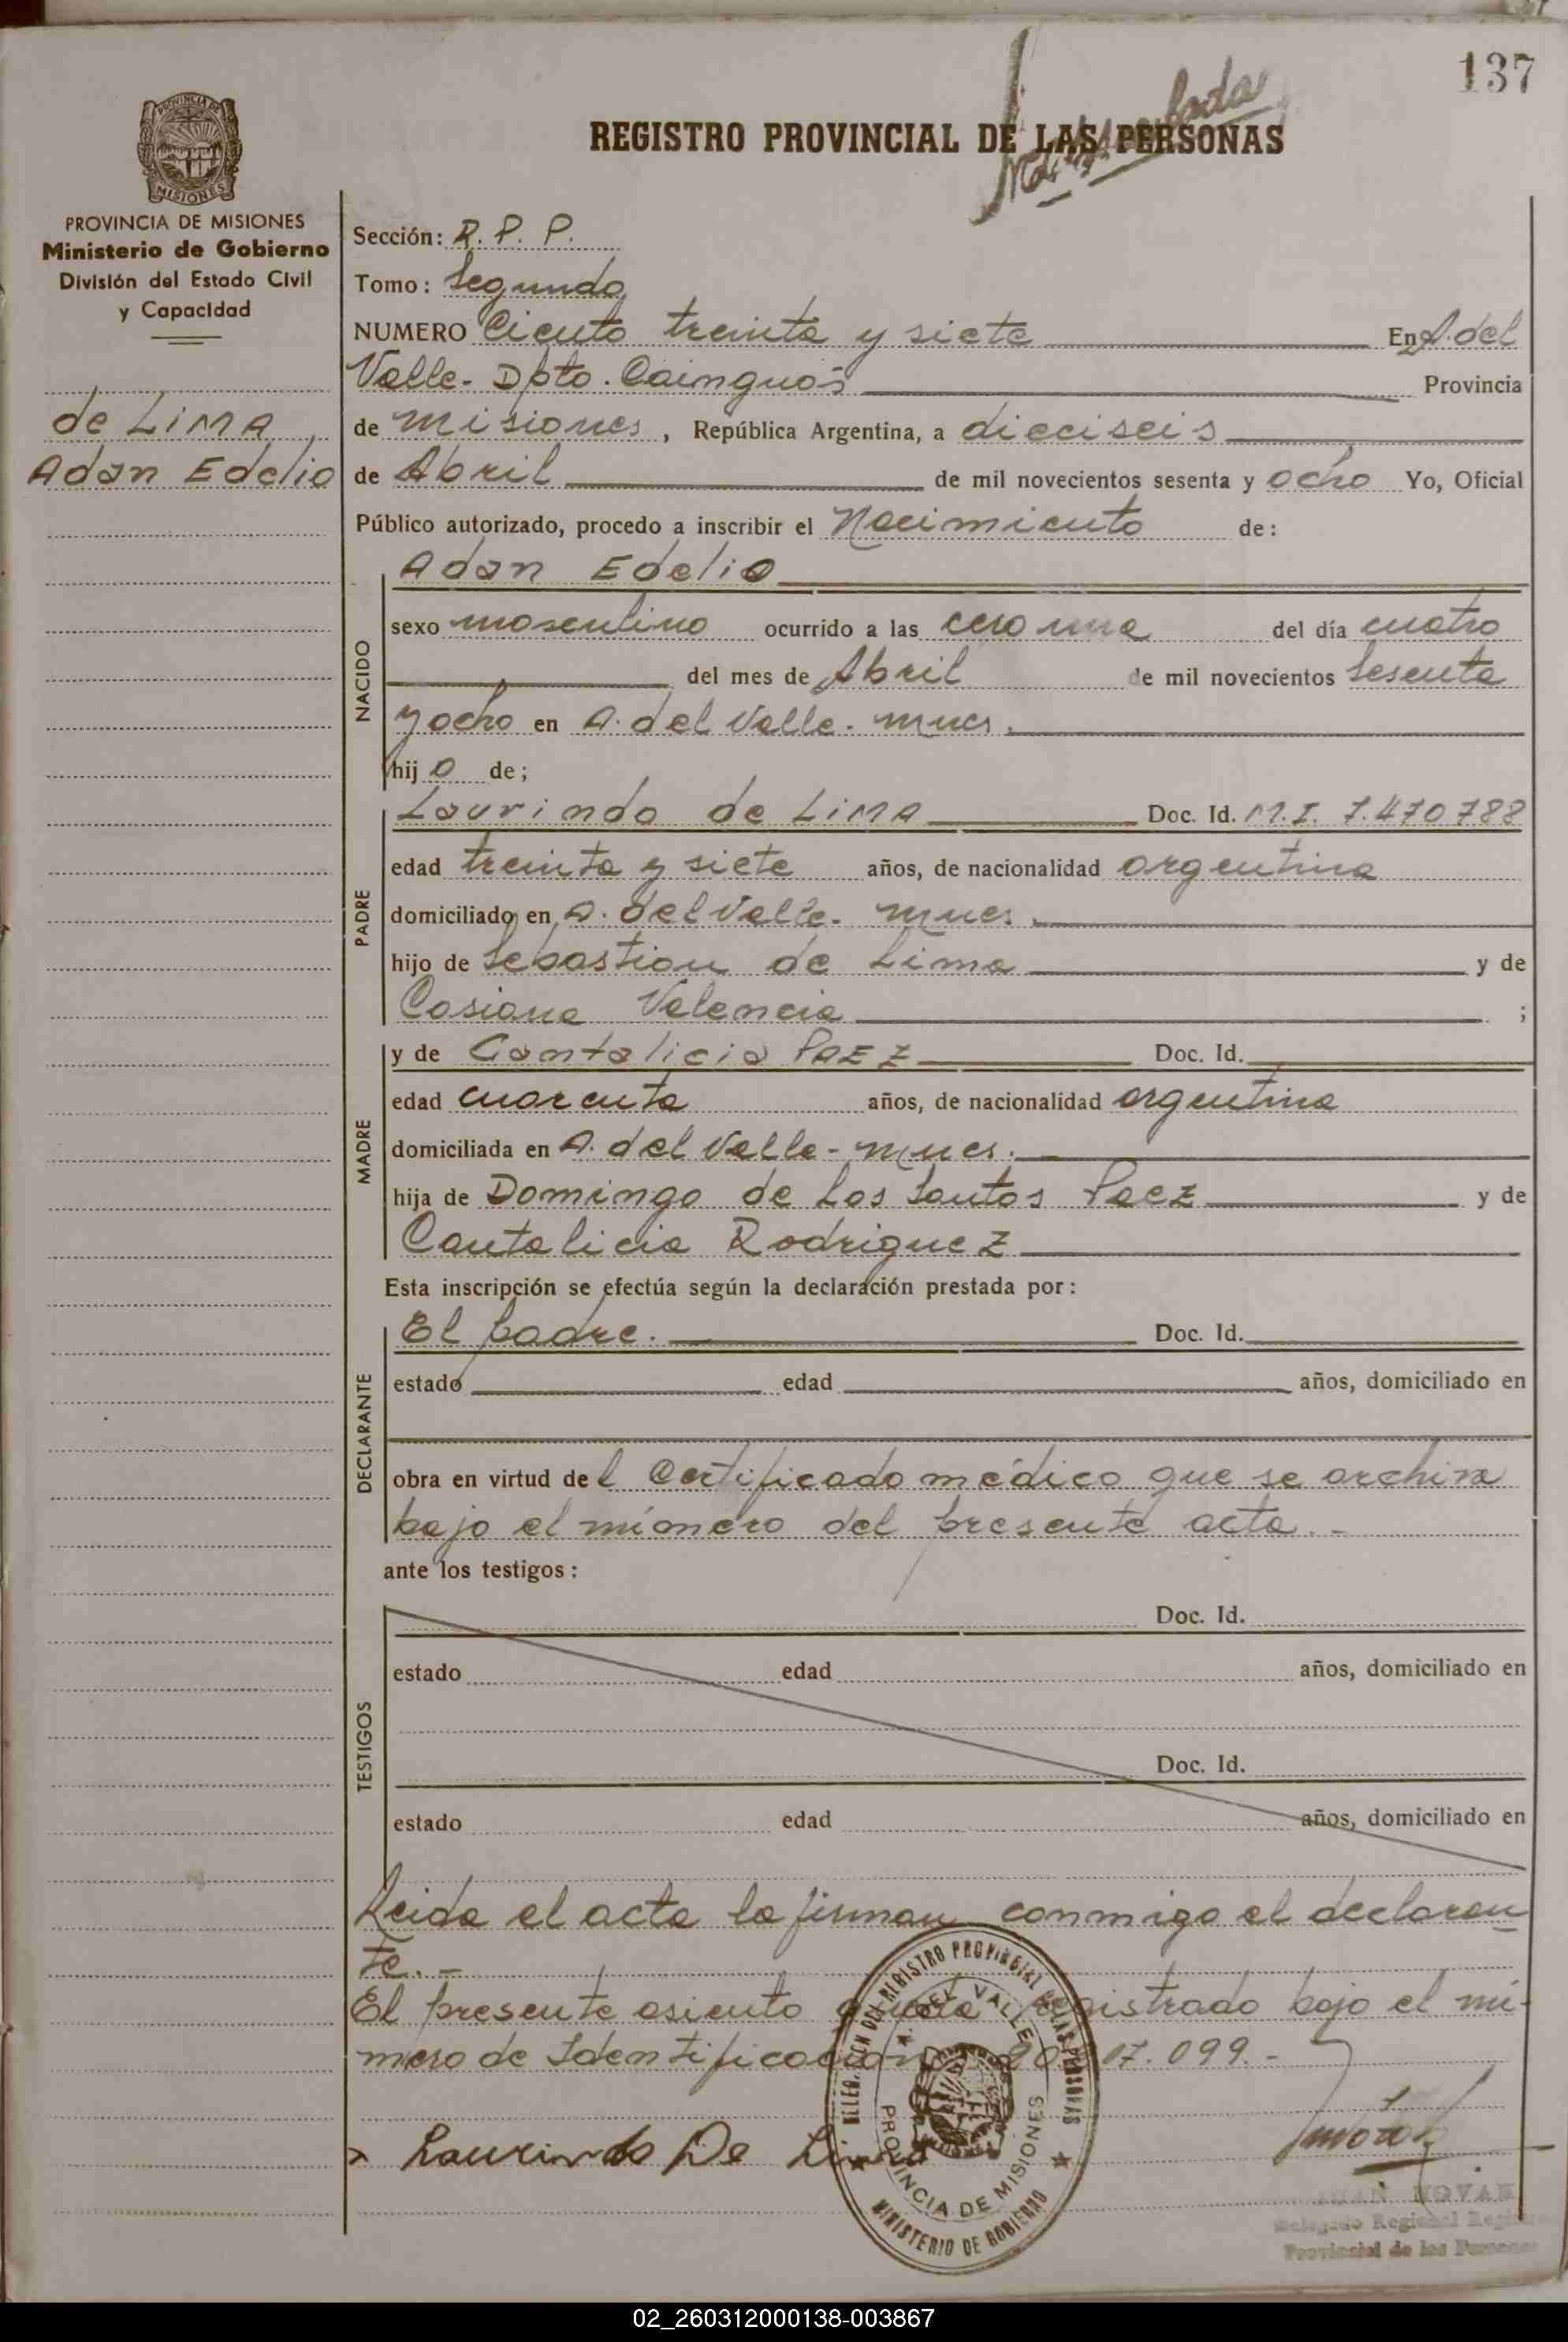 137
REGISTRO PROVINCIAL DE LAS PERSONAS
PROVINCIA DE
MISIONES
PROVINCIA DE MISIONES
Ministerio de Gobierno
División del Estado Civil
y Capacidad
de LIMA
Adan Edelio
Sección: R. P. P.
Tomo: Segundo
NUMERO Ciento treinta y siete En A. del
Valle - Dpto. Cainguás Provincia
de Misiones, República Argentina, a dieciseis
de Abril de mil novecientos sesenta y ocho Yo, Oficial
Público autorizado, procedo a inscribir el Nacimiento de:
NACIDO
Adan Edelio
sexo masculino ocurrido a las cero una del día cuatro
del mes de Abril de mil novecientos sesenta
y ocho en A. del Valle - Mnes.
hijo de;
PADRE
Laurindo de LIMA Doc. Id. M.I. 7.470.788
edad treinta y siete años, de nacionalidad argentina
domiciliado en A. del Valle - Mnes.
hijo de Sebastian de Lima y de
Casiana Valencia ;
MADRE
y de Cantalicia PAEZ Doc. Id.
edad cuarenta años, de nacionalidad argentina
domiciliada en A. del Valle - Mnes.
hija de Domingo de Los Santos Paez y de
Cantalicia Rodriguez
Esta inscripción se efectúa según la declaración prestada por:
DECLARANTE
El padre. Doc. Id.
estado edad años, domiciliado en
obra en virtud del Certificado médico que se archiva
bajo el número del presente acta. -
ante los testigos:
TESTIGOS
Doc. Id.
estado edad años, domiciliado en
Doc. Id.
estado edad años, domiciliado en
Leida el acta la firman conmigo el declaran
te. -
El presente asiento queda registrado bajo el nú-
mero de Identificación 20. 07.099. -
Laurindo De Lima
DEL REGISTRO PROVINCIAL DE LAS PERSONAS
A. DEL VALLE
PROVINCIA DE MISIONES
MINISTERIO DE GOBIERNO
JUAN NOVAK
Delegado Regional Registro
Provincial de las Personas
02_260312000138-003867